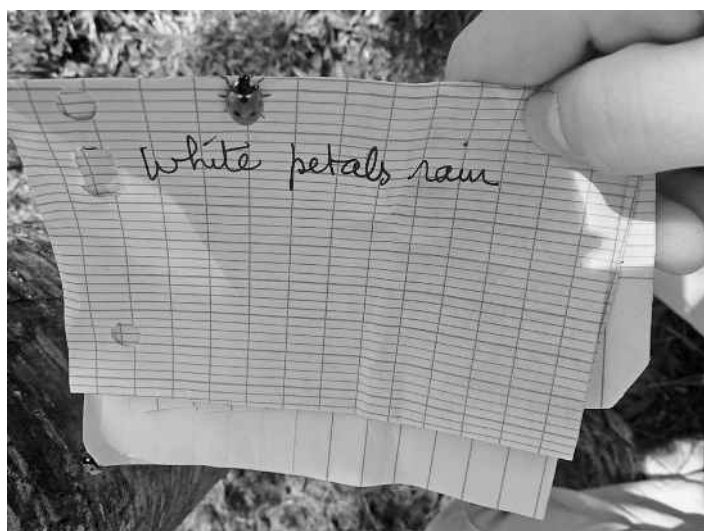 White petals rain